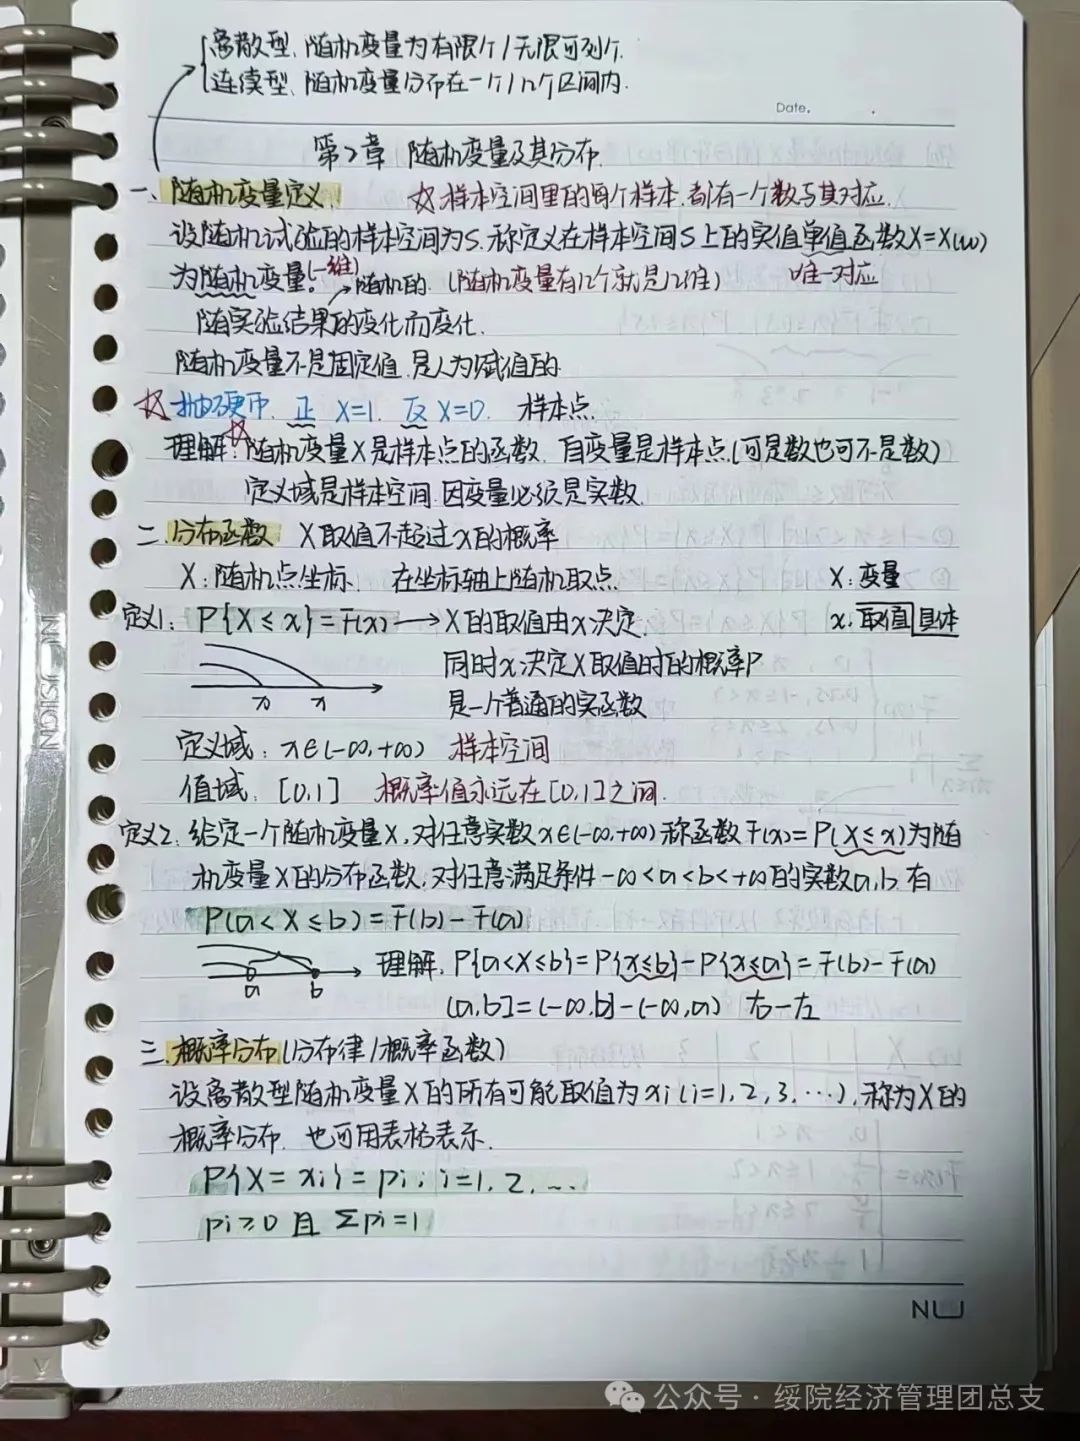 离散型、随机变量为有限个/无限可列个.
连续型、随机变量分布在一个/n个区间内.
Date.
第2章 随机变量及其分布.
一、随机变量定义. ☆样本空间里的每个样本.都有一个数与其对应.
设随机试验的样本空间为S.称定义在样本空间S上的实值单值函数X=X(ω)
为随机变量.(一维) 随机的.(随机变量有n个就是n维) 唯一对应
随实验结果的变化而变化.
随机变量不是固定值.是人为赋值的
☆抛硬币. 正 X=1. 反 X=0. 样本点.
理解:☆随机变量X是样本点的函数. 自变量是样本点(可是数也可不是数)
定义域是样本空间.因变量必须是实数.
二.分布函数 X取值不超过x的概率
X:随机点坐标. 在坐标轴上随机取点. X:变量
定义1: P{X≤x}=F(x)→X的取值由x决定. x:取值 具体
同时x决定X取值时的概率P
x x 是一个普通的实函数
定义域: x∈(-∞,+∞) 样本空间
值域: [0,1] 概率值永远在[0,1]之间.
定义2.给定一个随机变量X.对任意实数x∈(-∞,+∞)称函数F(x)=P(X≤x)为随
机变量X的分布函数.对任意满足条件-∞<a<b<+∞的实数a,b.有
P(a<X≤b)=F(b)-F(a)
a b 理解. P{a<X≤b}=P{x≤b}-P{x≤a}=F(b)-F(a)
(a,b]=(-∞,b]-(-∞,a) 右-左
三.概率分布(分布律/概率函数)
设离散型随机变量X的所有可能取值为xi(i=1,2,3,…).称为X的
概率分布. 也可用表格表示.
P{X=xi}=pi; i=1,2,…
pi≥0 且 Σpi=1
NU
公众号·绥院经济管理团总支